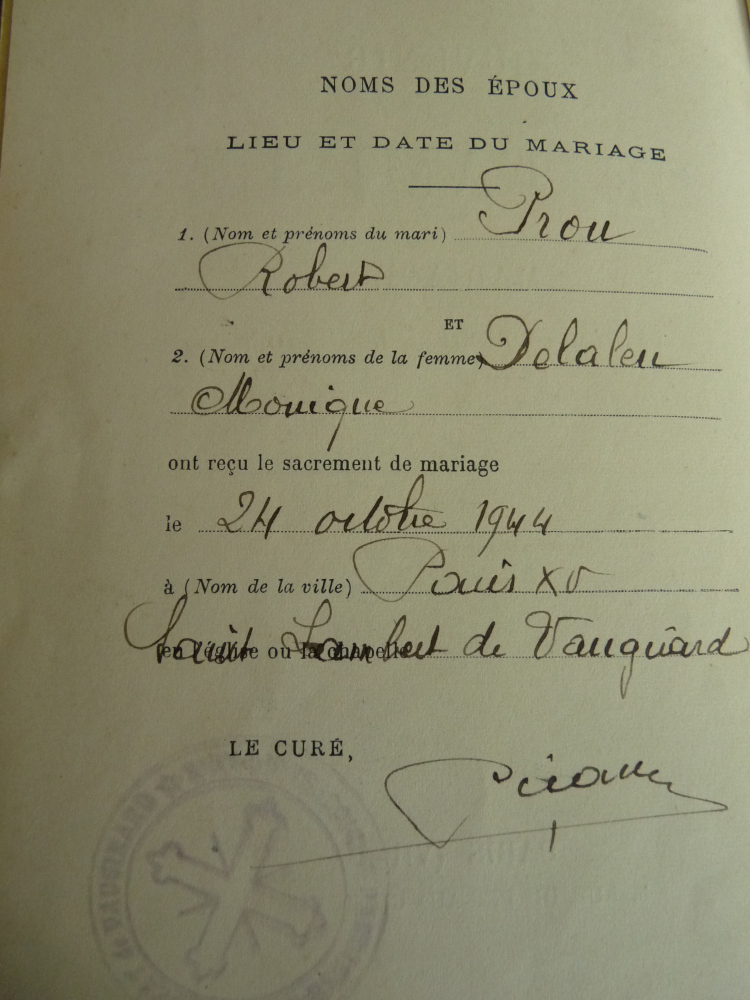 NOMS DES ÉPOUX
LIEU ET DATE DU MARIAGE
1. (Nom et prénoms du mari) Prou
Robert
ET
2. (Nom et prénoms de la femme) Delaleu
Monique
ont reçu le sacrement de mariage
le 24 octobre 1944
à (Nom de la ville) Paris XV
en l'église ou la chapelle Saint Lambert de Vaugirard
LE CURÉ,
VAUGIRARD